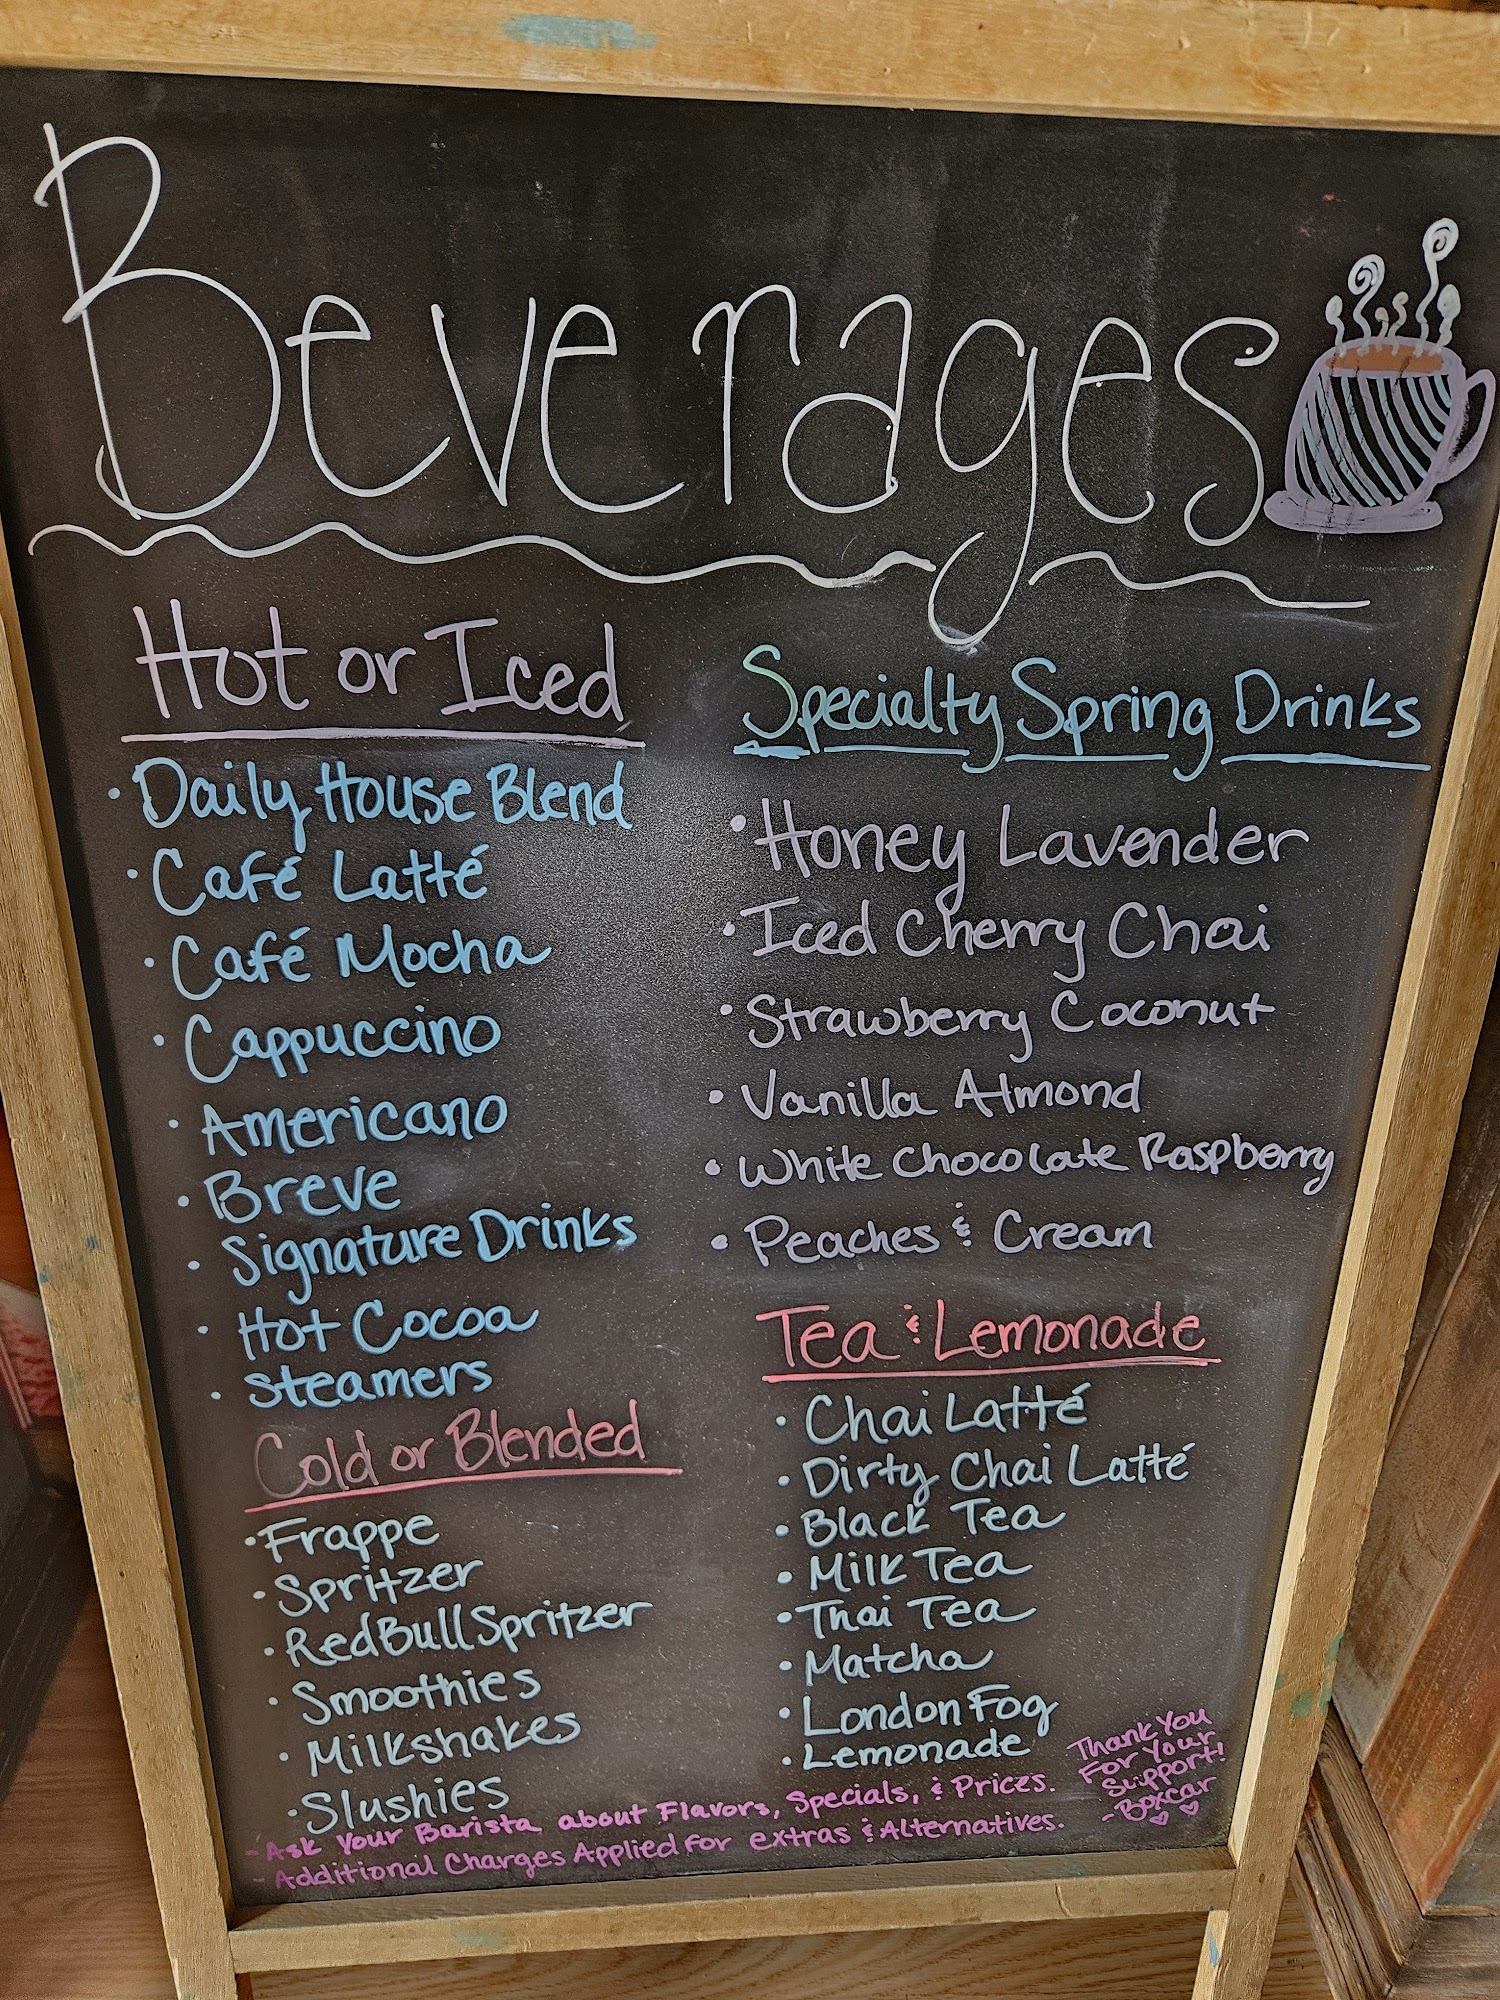 Beverages
Hot or Iced
• Daily House Blend
• Café Latté
• Café Mocha
• Cappuccino
• Americano
• Breve
• Signature Drinks
• Hot Cocoa
• Steamers
Cold or Blended
• Frappe
• Spritzer
• RedBull Spritzer
• Smoothies
• Milkshakes
• Slushies
Specialty Spring Drinks
• Honey Lavender
• Iced Cherry Chai
• Strawberry Coconut
• Vanilla Almond
• White Chocolate Raspberry
• Peaches & Cream
Tea & Lemonade
• Chai Latté
• Dirty Chai Latté
• Black Tea
• Milk Tea
• Thai Tea
• Matcha
• London Fog
• Lemonade
- Ask Your Barista about Flavors, Specials, & Prices.
- Additional Charges Applied for extras & Alternatives.
Thank You
For Your
Support!
- Boxcar